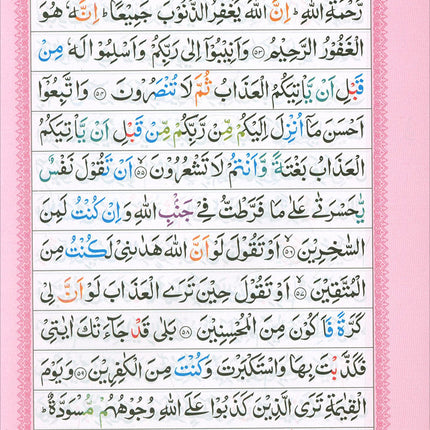 رَّحْمَةِ اللّٰهِ ؕ اِنَّ اللّٰهَ يَغْفِرُ الذُّنُوْبَ جَمِيْعًا ؕ اِنَّهٗ هُوَ
الْغَفُوْرُ الرَّحِيْمُ ﴿۵۳﴾ وَاَنِيْبُوْۤا اِلٰى رَبِّكُمْ وَاَسْلِمُوْا لَهٗ مِنْ
قَبْلِ اَنْ يَّاْتِيَكُمُ الْعَذَابُ ثُمَّ لَا تُنْصَرُوْنَ ﴿۵۴﴾ وَاتَّبِعُوْۤا
اَحْسَنَ مَاۤ اُنْزِلَ اِلَيْكُمْ مِّنْ رَّبِّكُمْ مِّنْ قَبْلِ اَنْ يَّاْتِيَكُمُ
الْعَذَابُ بَغْتَةً وَّاَنْتُمْ لَا تَشْعُرُوْنَ ﴿۵۵﴾ اَنْ تَقُوْلَ نَفْسٌ
يّٰحَسْرَتٰى عَلٰى مَا فَرَّطْتُّ فِيْ جَنْۢبِ اللّٰهِ وَاِنْ كُنْتُ لَمِنَ
السّٰخِرِيْنَ ﴿۵۶﴾ اَوْ تَقُوْلَ لَوْ اَنَّ اللّٰهَ هَدٰىنِيْ لَكُنْتُ مِنَ
الْمُتَّقِيْنَ ﴿۵۷﴾ اَوْ تَقُوْلَ حِيْنَ تَرَى الْعَذَابَ لَوْ اَنَّ لِيْ
كَرَّةً فَاَكُوْنَ مِنَ الْمُحْسِنِيْنَ ﴿۵۸﴾ بَلٰى قَدْ جَآءَتْكَ اٰيٰتِيْ
فَكَذَّبْتَ بِهَا وَاسْتَكْبَرْتَ وَكُنْتَ مِنَ الْكٰفِرِيْنَ ﴿۵۹﴾ وَيَوْمَ
الْقِيٰمَةِ تَرَى الَّذِيْنَ كَذَبُوْا عَلَى اللّٰهِ وُجُوْهُهُمْ مُّسْوَدَّةٌ ؕ